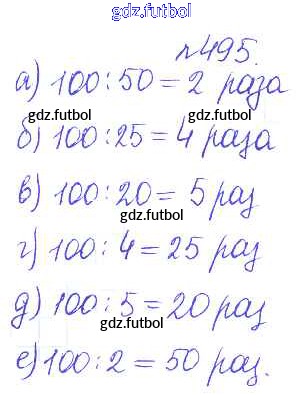 gdz.futbol
№495.
а) 100 : 50 = 2 раза
gdz.futbol
б) 100 : 25 = 4 раза
gdz.futbol
в) 100 : 20 = 5 раз
gdz.futbol
г) 100 : 4 = 25 раз
gdz.futbol
д) 100 : 5 = 20 раз
gdz.futbol
е) 100 : 2 = 50 раз.
gdz.futbol